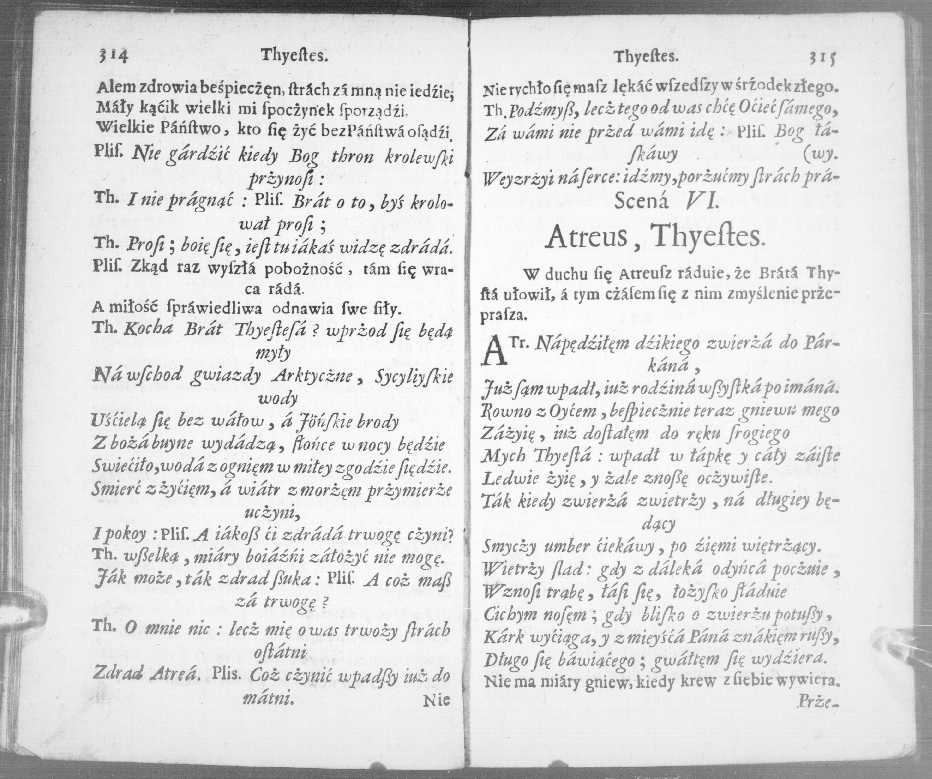 314 Thyeſtes.
Alem zdrowia beśpieczęn, ſtrách zá mną nie iedźie;
Máły kąćik wielki mi ſpoczynek ſporządźi.
Wielkie Páńſtwo, kto ſię żyć bez Páńſtwá oſądźi.
Pliſ. Nie gárdźić kiedy Bog thron krolewſki
przżynoſi :
Th. I nie prágnąć : Pliſ. Brát o to, byś krolo-
wał proſi ;
Th. Proſi ; boię ſię, ieſt tu iákaś widzę zdrádá.
Pliſ. Zkąd raz wyſzłá pobożność, tám ſię wra-
ca rádá.
A miłość ſpráwiedliwa odnawia ſwe ſiły.
Th. Kocha Brát Thyeſteſá ? wprżod ſię będą
myły
Ná wſchod gwiazdy Arktyczżne, Sycyliyſkie
wody
Uśćielą ſię bez wáłow, á Jöńſkie brody
Z bożá buyne wydádzą, ſłońce w nocy będźie
Swiećiło, wodá z ognięm w miłey zgodźie ſiędźie.
Smierć z żyćięm, á wiátr z morżęm prżymierże
uczyni,
I pokoy : Pliſ. A iákoß ći zdrádá trwogę czżyni?
Th. wßelką, miáry boiáźńi záłożyć nie mogę.
Ják może, ták zdrad ßuka : Pliſ. A coż maß
zá trwogę ?
Th. O mnie nic : lecż mię o was trwoży ſtrách
oſtátni
Zdrad Atreá. Plis. Coż cżynić wpadßy iuż do
mátni. Nie
Thyeſtes. 315
Nie rychło ſię maſz lękáć wſzedſzy w śrżodek złego.
Th. Podźmyß, lecż tego od was chćę Oćieć ſámego,
Zá wámi nie przed wámi idę : Pliſ. Bog łá-
ſkáwy (wy.
Weyzrżyi ná ſerce: idźmy, porżućmy ſtrách prá-
Scená VI.
Atreus, Thyeſtes.
W duchu ſię Atreusz ráduie, że Brátá Thy-
ſtá ułowił, á tym cżáſem ſię z nim zmyślenie prże-
praſza.
ATr. Nápędźiłęm dźikiego zwierżá do Pár-
káná,
Już ſąm wpadł, iuż rodźiná wßyſtká poimáná.
Rowno z Oyćem, beſpiecżnie teraz gniewu mego
Záżyię, iuż doſtałęm do ręku ſrogiego
Mych Thyeſtá : wpadł w łápkę y cáły záiſte
Ledwie żyię, y żale znoßę ocżywiſte.
Ták kiedy zwierżá zwietrży, ná długiey bę-
dący
Smycży umber ćiekáwy, po źięmi więtrżący.
Wietrży ſlad : gdy z dáleká odyńcá pocżuie,
Wznoſi trąbę, łáſi ſię, łożyſko ſláduie
Cichym noſęm ; gdy bliſko o zwierżu potußy,
Kárk wyćiąga, y z mięyśćá Páná znákięm rußy,
Długo ſię báwiącego ; gwáłtęm ſię wydźiera.
Nie ma miáry gniew, kiedy krew z ſiebie wywiera.
Prże-